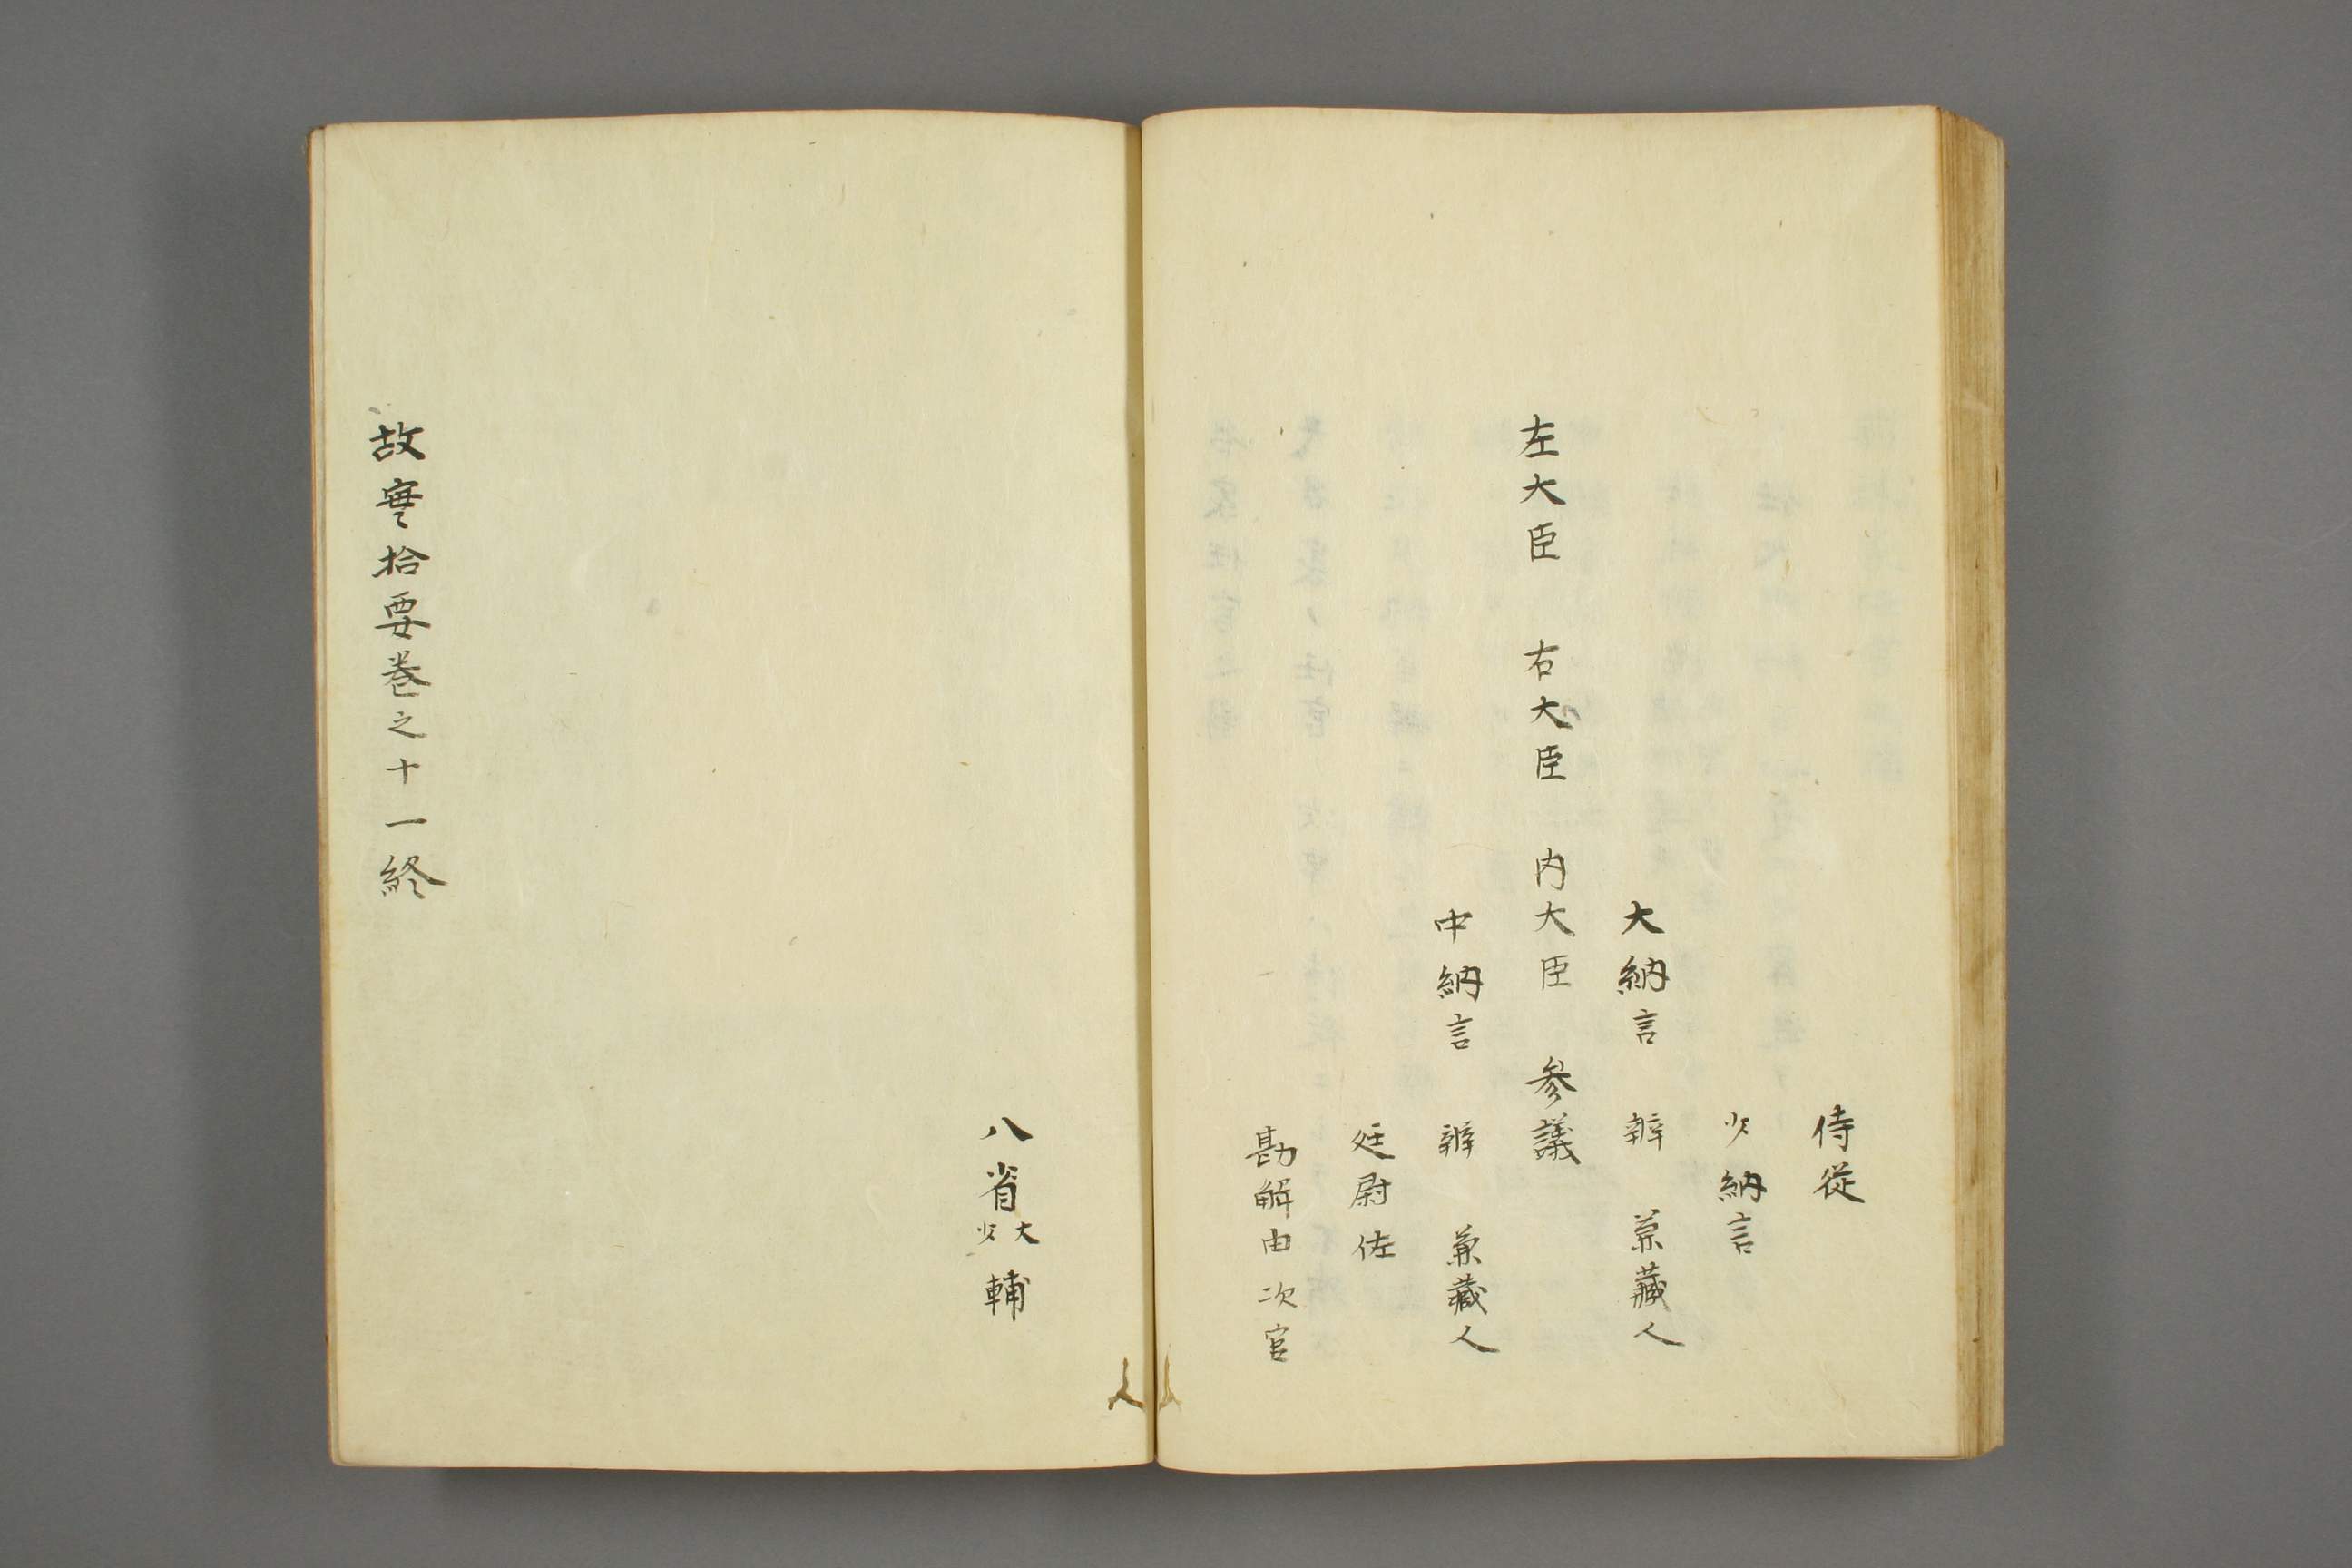 侍従
少納言
大納言　辨　兼藏人
左大臣　右大臣　内大臣　参議
中納言　辨　兼藏人
廷尉佐
勘解由次官
八省大少輔
故実拾要巻之十一終